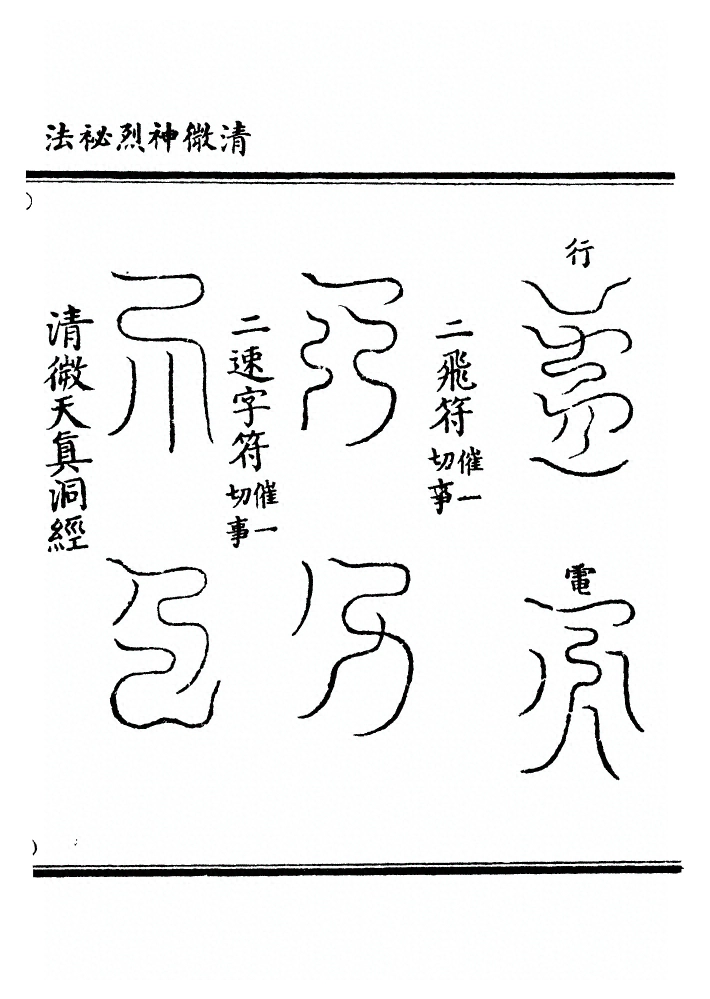 清微神烈祕法
行
電
二飛符催一切事
二速字符催一切事
清微天眞洞經